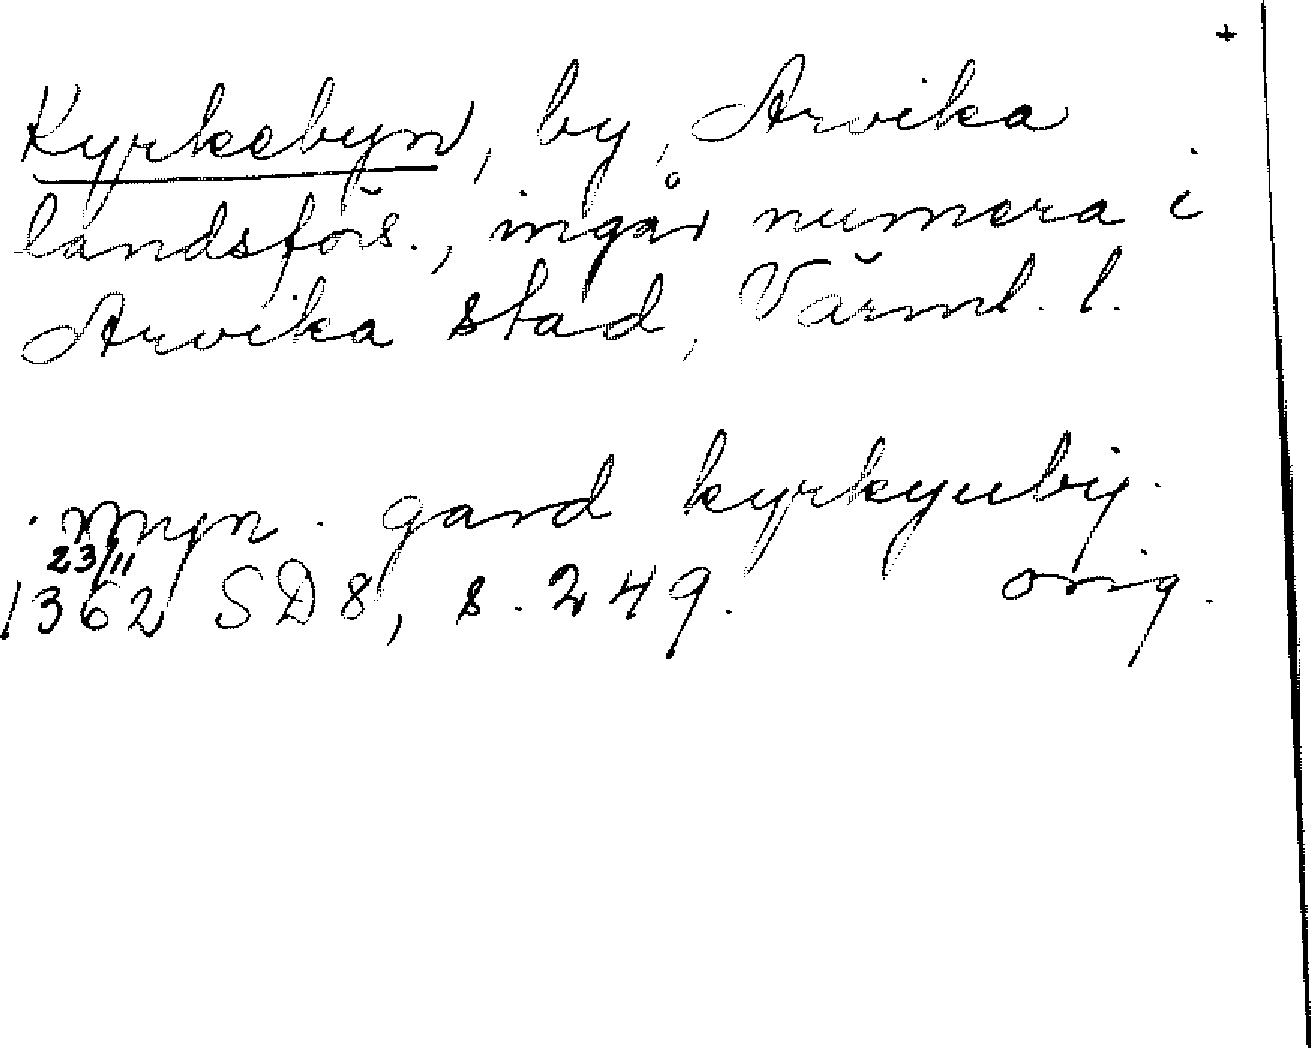 +
Kyrkebyn, by, Arvika
landsförs., ingår numera i
Arvika stad, Värml. l.
. myn . gard kyrkyuby.
23/11
1362 SD 8, s. 249. orig.